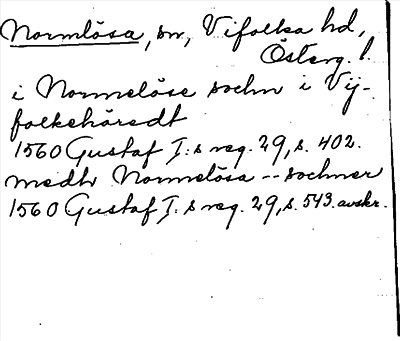 Normlösa, sn, Vifolka hd,
Österg. l.
i Normelöse sochn i Vij-
folkehäredt
1560 Gustaf I:s reg. 29, s. 402.
medh Normelösa -- sochner
1560 Gustaf I:s reg. 29, s. 543. avskr.